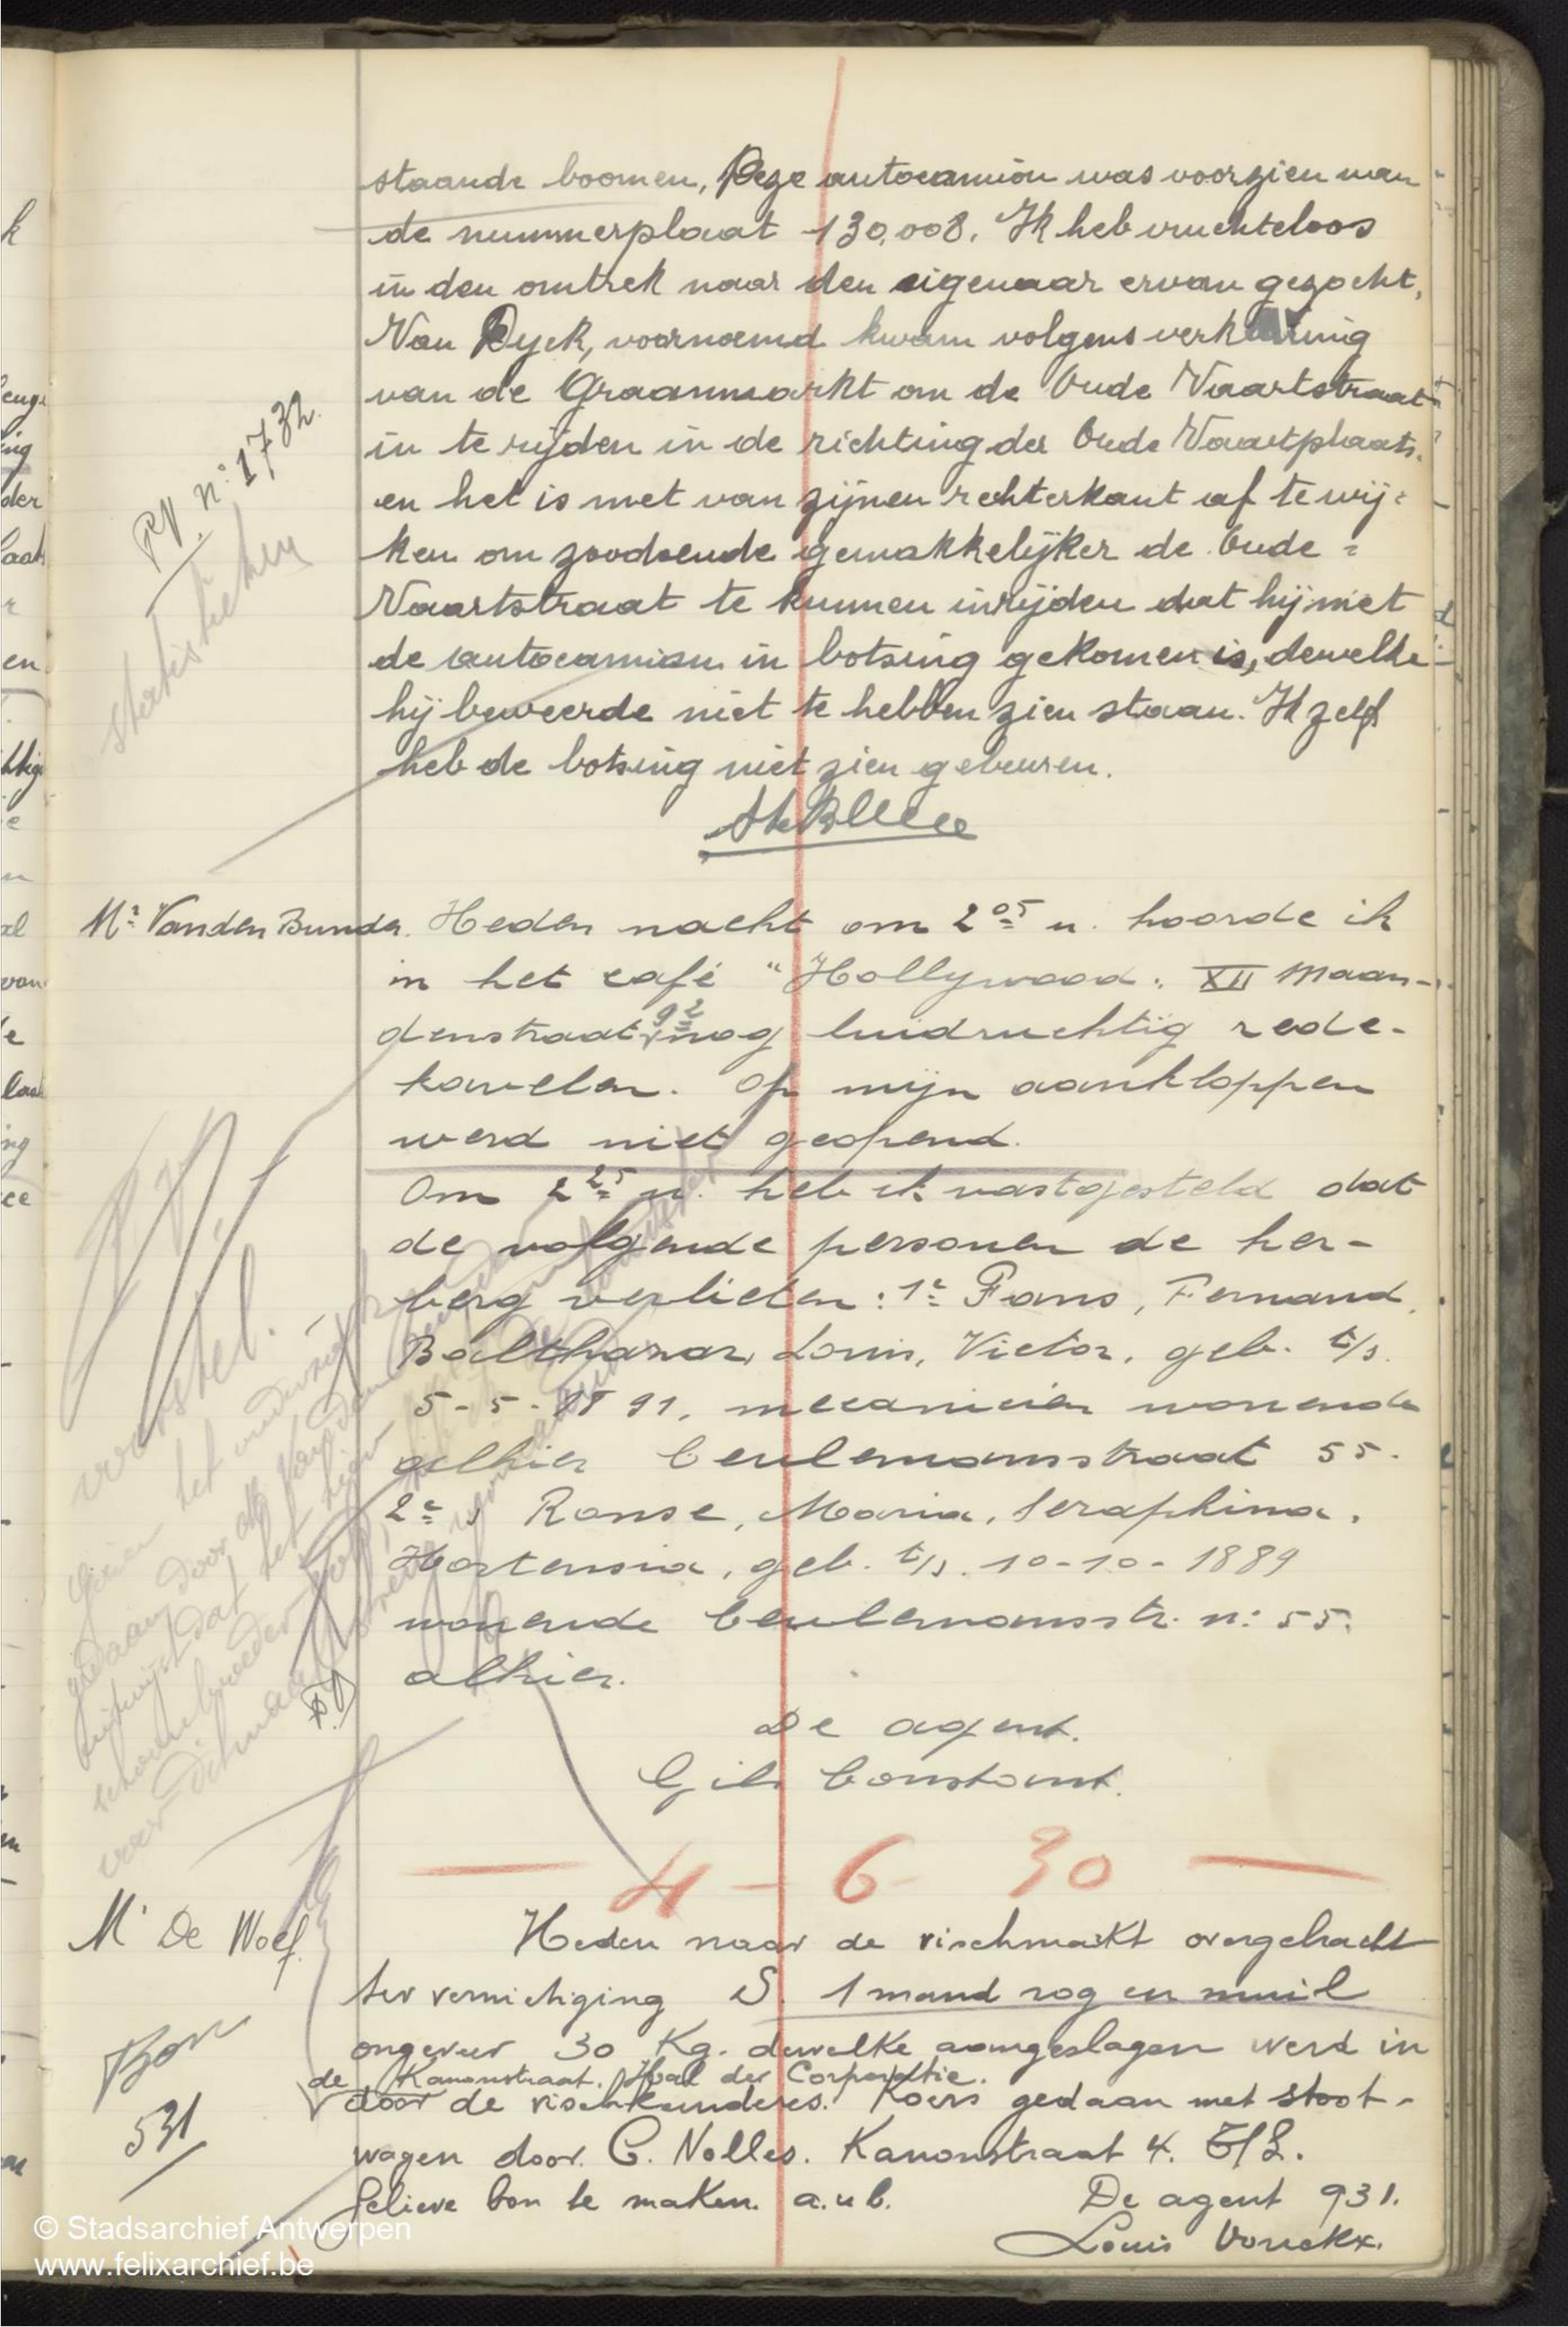 staande boomen, Deze autocamion was voorzien van
de nummerplaat 130.008. Ik heb vruchteloos
in den omtrek naar den eigenaar ervan gezocht,
Van Dyck, voornoemd kwam volgens verklaring
van de Graanmarkt om de Oude Vaartstraat
in te rijden in de richting der Oude Vaartplaats.
en het is met van zijnen rechterkant af te wij=
ken om zoodoende gemakkelijker de Oude =
Vaartstraat te kunnen inrijden dat hij met
de autocamion in botsing gekomen is, dewelke
hij beweerde niet te hebben zien staan. Ik zelf
heb de botsing niet zien gebeuren.
PV. n: 1732.
statistieken
Mr Vanden Bunder. Heden nacht om 2 05 u. hoorde ik
in het café "Hollywood. XII Maan-
denstraat, 92 nog luidruchtig rede-
kavelen. Op mijn aankloppen
werd niet geopend.
Om 2 25 u. heb ik vastgesteld dat
de volgende personen de her-
berg verlieten: 1e Fans, Fernand
Balthazar, Louis, Victor. geb. t/s.
5-5-1891, mecanicien wonende
alhier Ceulemansstraat 55.
2e Ranse, Maria, Seraphina.
Hortensia, geb. t/s. 10-10-1889
wonende Ceulemansstr. n: 55.
alhier.
De agent.
Gils Constant.
P.V.
voorstel.
het onderzoek
gedaan door
uitwijst dat het hier
schoonbroeder
4 - 6 - 30
M. De Woef.
Heden naar de vischmarkt overgebracht
ter vernietiging S. 1 mand rog en muil
ongeveer 30 Kg. dewelke aangeslagen werd in
de Kanonstraat. Hal der Corporatie.
door de vischkunders. Koers gedaan met stoot-
wagen door. C. Nolles. Kanonstraat 4. E/S.
Gelieve bon te maken. a.u.b. De agent 931.
Louis Vonckx.
Bon
531
© Stadsarchief Antwerpen
www.felixarchief.be